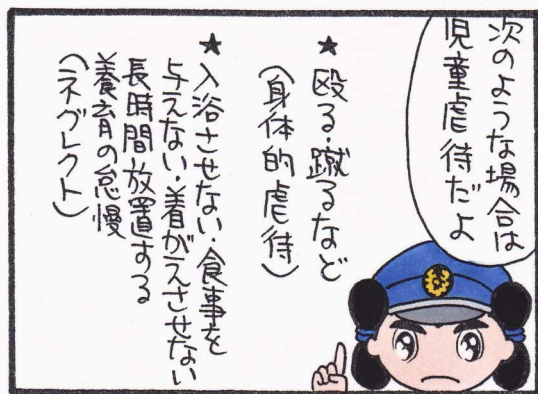 次のような場合は
児童虐待だよ
★殴る・蹴るなど
(身体的虐待)
★入浴させない・食事を
与えない・着がえさせない
長時間放置する
養育の怠慢
(ネグレクト)